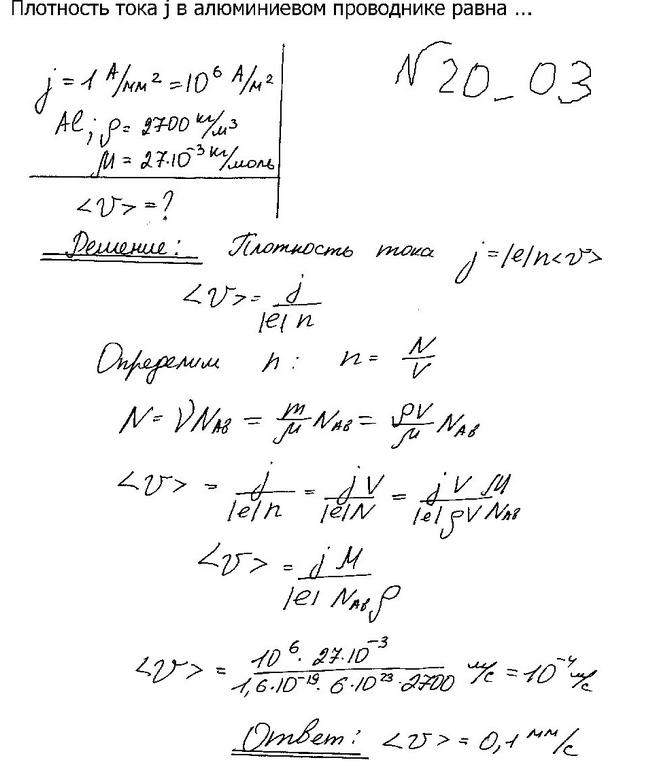 Плотность тока j в алюминиевом проводнике равна ...
j = 1 А/мм² = 10⁶ А/м²
N 20_03
Al; ρ = 2700 кг/м³
M = 27·10⁻³ кг/моль
<v> = ?
Решение: Плотность тока j = |e|n<v>
<v> = j / |e| n
Определим n: n = N / V
N = νN_АВ = m/μ N_АВ = ρV/μ N_АВ
<v> = j / |e| n = j V / |e| N = j V M / |e| ρ V N_АВ
<v> = j M / |e| N_АВ ρ
<v> = 10⁶ · 27·10⁻³ / 1,6·10⁻¹⁹ · 6·10²³ · 2700 м/с = 10⁻⁴ м/с
Ответ: <v> = 0,1 мм/с